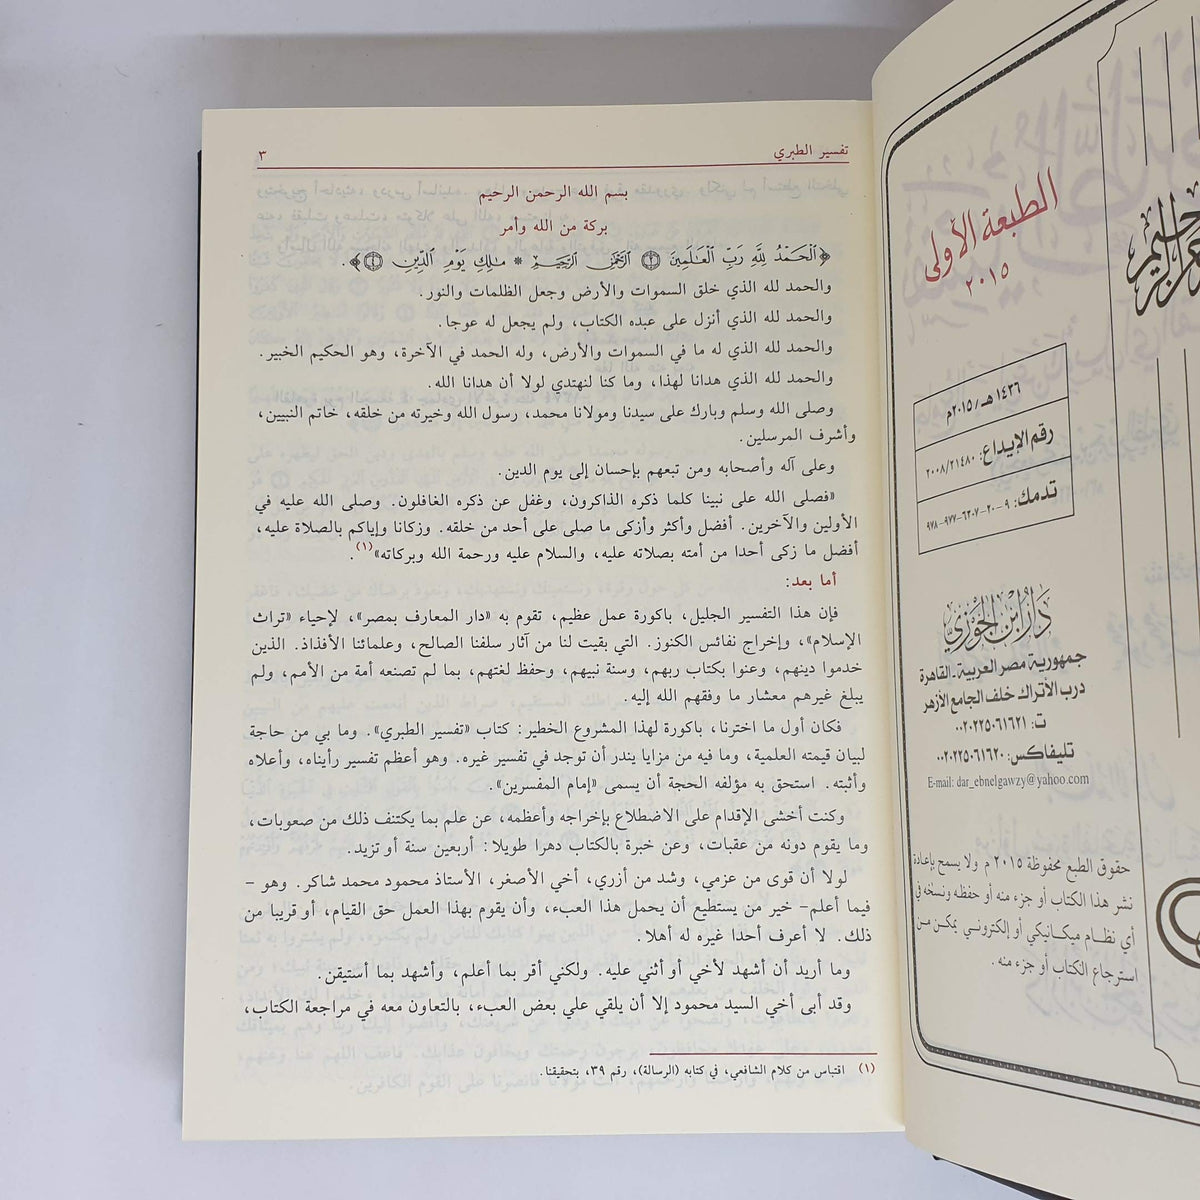 الطبعة الأولى
٢٠١٥
١٤٣٦ هـ/٢٠١٥م
رقم الإيداع: ٢٠٠٨/٢١٤٨٠
تدمك: ٩-٢٠-٦٣٠٧-٩٧٧-٩٧٨
دار ابن الجوزي
جمهورية مصر العربية - القاهرة
درب الأتراك خلف الجامع الأزهر
ت: ٠٠٢٠٢٢٥٠٦١٦٢١
تليفاكس: ٠٠٢٠٢٢٥٠٦١٦٢٠
E-mail: dar_ebnelgawzy@yahoo.com
حقوق الطبع محفوظة ٢٠١٥ م ولا يسمح بإعادة
نشر هذا الكتاب أو جزء منه أو حفظه ونسخه في
أي نظام ميكانيكي أو إلكتروني يمكن من
استرجاع الكتاب أو جزء منه .
تفسير الطبري ٣
بسم الله الرحمن الرحيم
بركة من الله وأمر
﴿ٱلْحَمْدُ لِلَّهِ رَبِّ ٱلْعَـٰلَمِينَ ٢ ٱلرَّحْمَـٰنِ ٱلرَّحِيمِ * مَـٰلِكِ يَوْمِ ٱلدِّينِ ٤﴾ .
والحمد لله الذي خلق السموات والأرض وجعل الظلمات والنور.
والحمد لله الذي أنزل على عبده الكتاب، ولم يجعل له عوجا.
والحمد لله الذي له ما في السموات والأرض، وله الحمد في الآخرة، وهو الحكيم الخبير.
والحمد لله الذي هدانا لهذا، وما كنا لنهتدي لولا أن هدانا الله.
وصلى الله وسلم وبارك على سيدنا ومولانا محمد، رسول الله وخيرته من خلقه، خاتم النبيين،
وأشرف المرسلين.
وعلى آله وأصحابه ومن تبعهم بإحسان إلى يوم الدين.
«فصلى الله على نبينا كلما ذكره الذاكرون، وغفل عن ذكره الغافلون. وصلى الله عليه في
الأولين والآخرين. أفضل وأكثر وأزكى ما صلى على أحد من خلقه. وزكانا وإياكم بالصلاة عليه،
أفضل ما زكى أحدا من أمته بصلاته عليه، والسلام عليه ورحمة الله وبركاته»(١).
أما بعد:
فإن هذا التفسير الجليل، باكورة عمل عظيم، تقوم به «دار المعارف بمصر»، لإحياء «تراث
الإسلام»، وإخراج نفائس الكنوز. التي بقيت لنا من آثار سلفنا الصالح، وعلمائنا الأفذاذ. الذين
خدموا دينهم، وعنوا بكتاب ربهم، وسنة نبيهم، وحفظ لغتهم، بما لم تصنعه أمة من الأمم، ولم
يبلغ غيرهم معشار ما وفقهم الله إليه.
فكان أول ما اخترنا، باكورة لهذا المشروع الخطير: كتاب «تفسير الطبري». وما بي من حاجة
لبيان قيمته العلمية، وما فيه من مزايا يندر أن توجد في تفسير غيره. وهو أعظم تفسير رأيناه، وأعلاه
وأثبته. استحق به مؤلفه الحجة أن يسمى «إمام المفسرين».
وكنت أخشى الإقدام على الاضطلاع بإخراجه وأعظمه، عن علم بما يكتنف ذلك من صعوبات،
وما يقوم دونه من عقبات، وعن خبرة بالكتاب دهرا طويلا: أربعين سنة أو تزيد.
لولا أن قوى من عزمي، وشد من أزري، أخي الأصغر، الأستاذ محمود محمد شاكر. وهو -
فيما أعلم- خير من يستطيع أن يحمل هذا العبء، وأن يقوم بهذا العمل حق القيام، أو قريبا من
ذلك. لا أعرف أحدا غيره له أهلا.
وما أريد أن أشهد لأخي أو أثني عليه. ولكني أقر بما أعلم، وأشهد بما أستيقن.
وقد أبى أخي السيد محمود إلا أن يلقي علي بعض العبء، بالتعاون معه في مراجعة الكتاب،
(١) اقتباس من كلام الشافعي، في كتابه (الرسالة)، رقم ٣٩، بتحقيقنا.